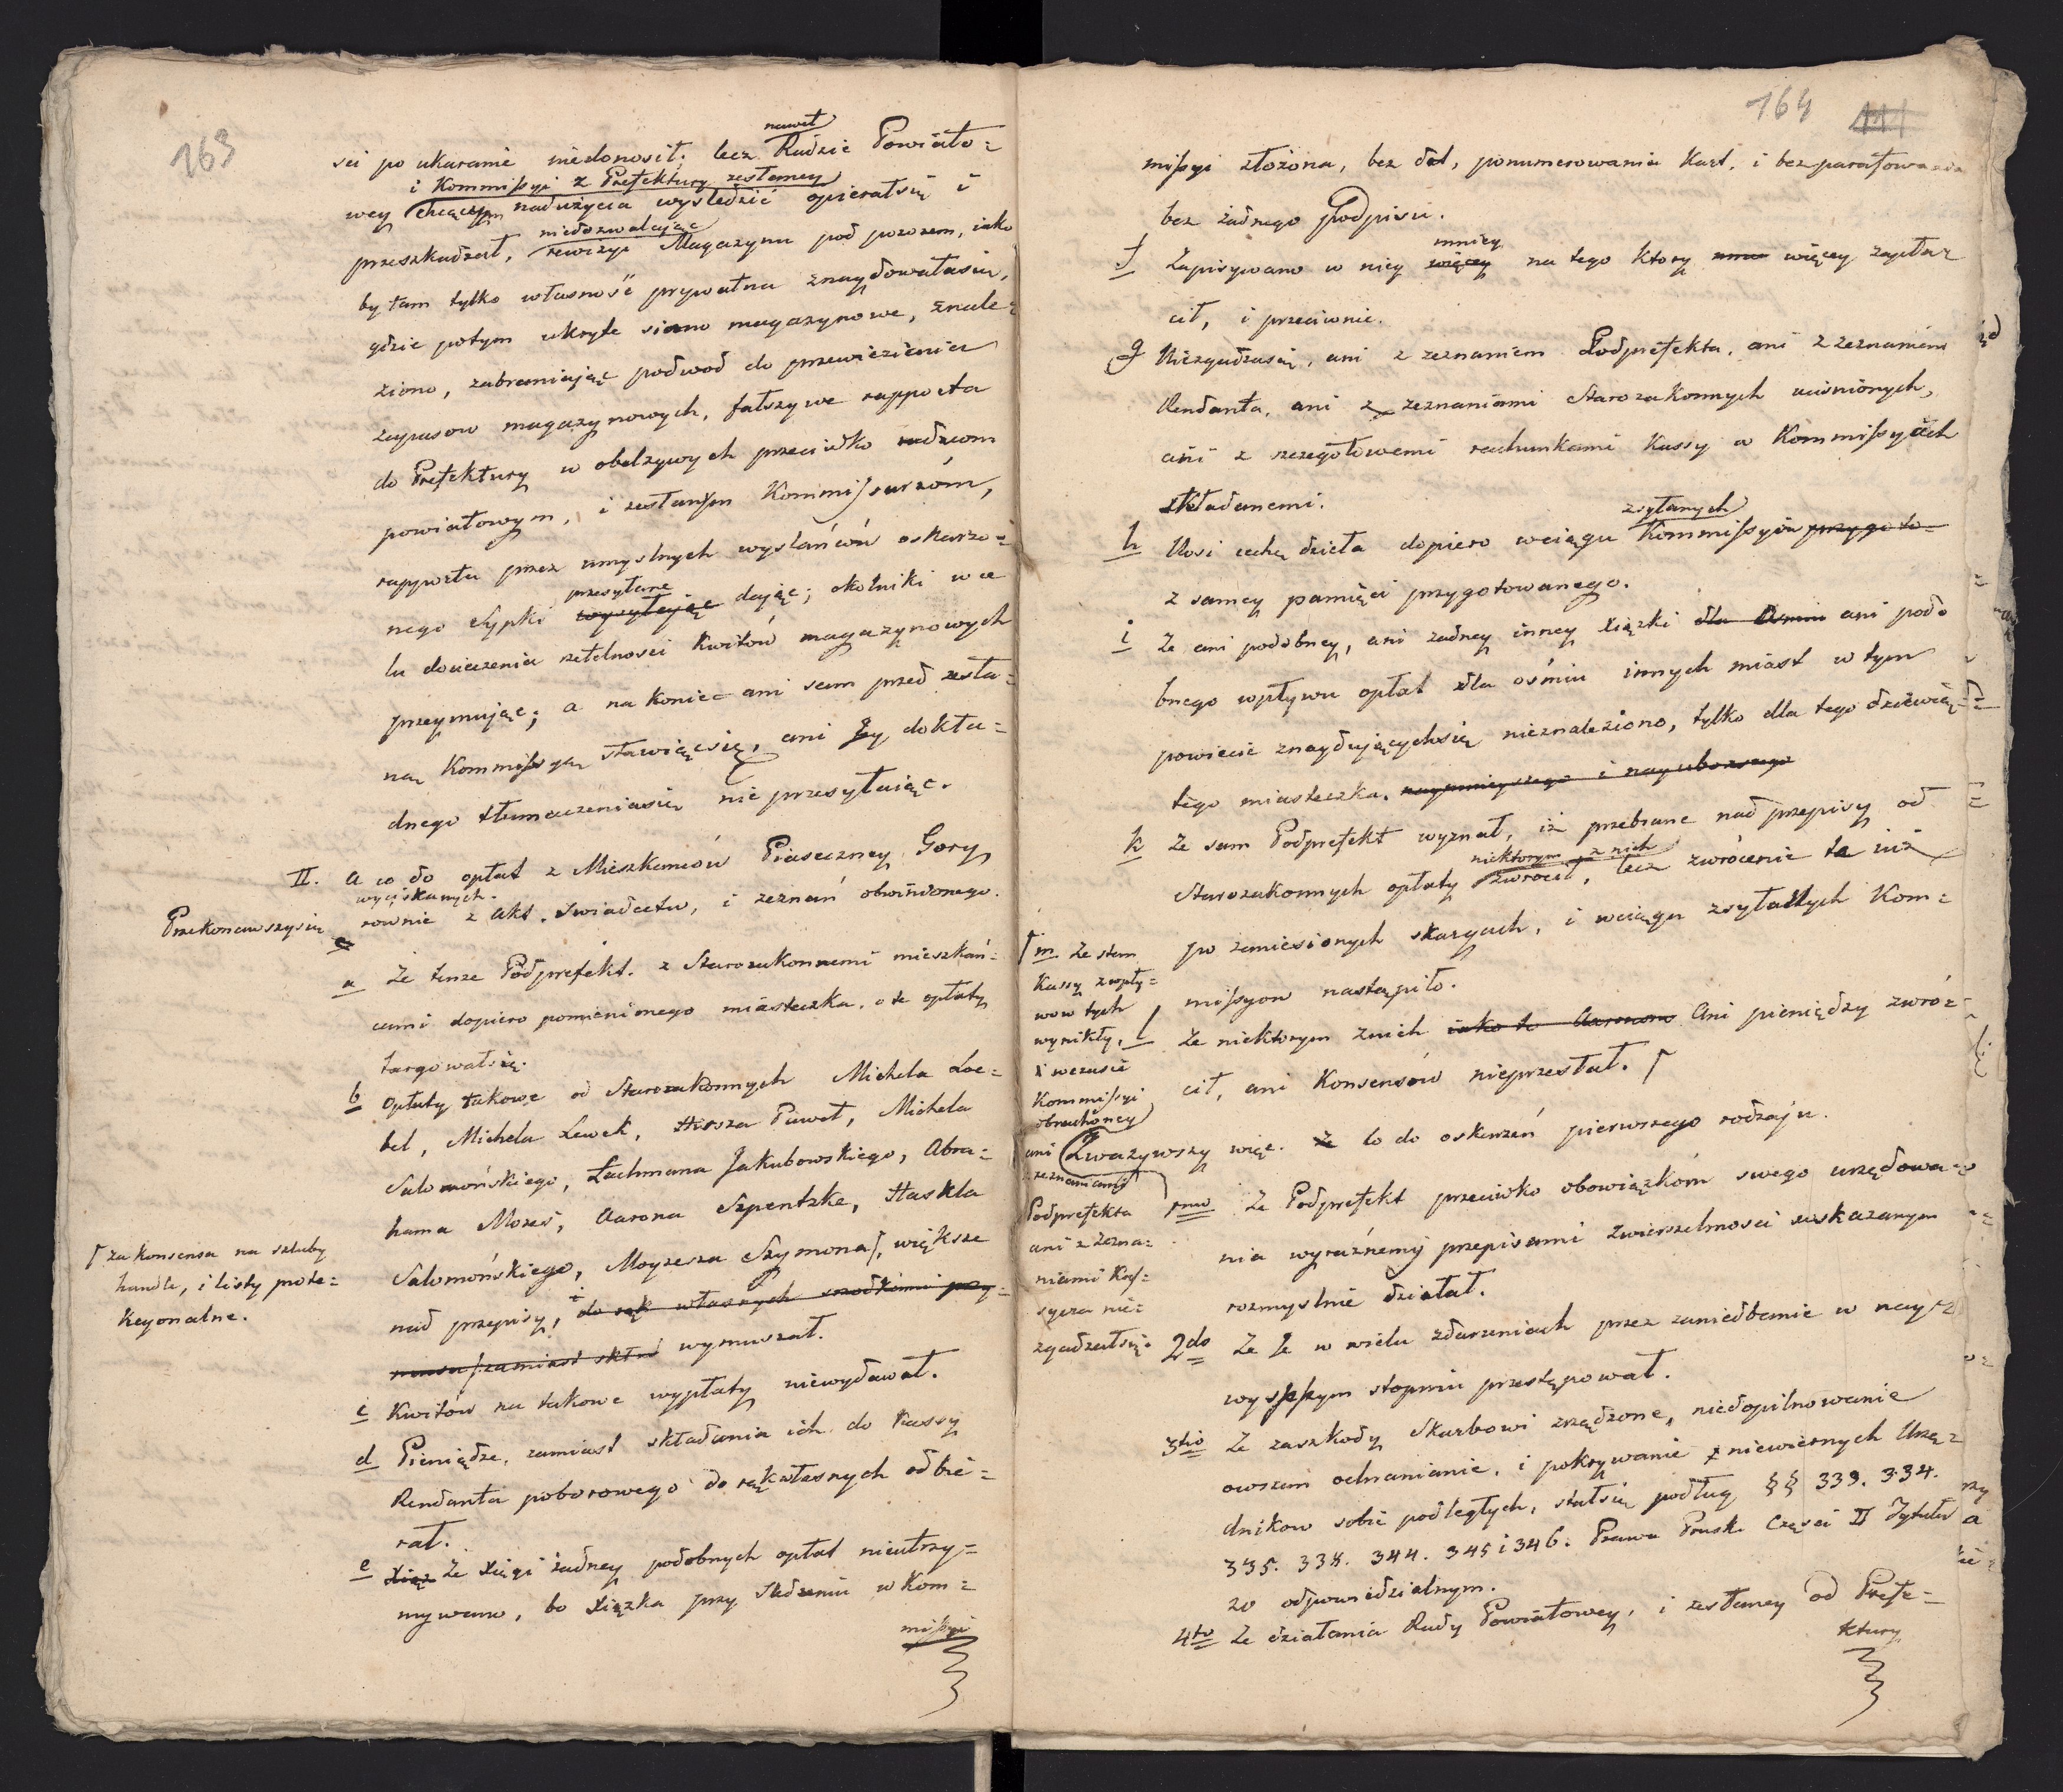 163
sci po ukaranie niedonosił; lecz nawet Radzie Powiato=
wey i Kommissyi z Prefektury zesłaney chcącym nadużycia wyśledzić opierałsię i
przeszkadzał, niedozwalając rewizyi Magazynu pod pozorem, iako
by tam tylko własność prywatna znaydowałasię,
gdzie potym ukryte siano magazynowe, znale=
ziono, zabraniaiąc podwod do przewiezienia
zapasow magazynowych, fałszywe rapporta
do Prefektury w obelzywych przeciwko radzcom
powiatowym, i zesłanym Kommissarzóm,
rapporta przez umyslnych wysłańców oskarzo=
nego Sypki przesyłane wysyłaiąc daiąc; okolniki w ce
lu docieczenia rzetelnosci Kwitów magazynowych
przeymuiąc; a na koniec ani sam przed zesła=
ną Kommissyą stawiącsię, ani Jey dokła=
dnego tłumaczeniasię nie przesyłaiąc.
II. a co do opłat z Mieszkańców Piaseczney Gory
wyciskanych.
Przekonawszysię rownie z Akt. Swiadectw, i zeznań obwinionego.
a Że tenze Podprefekt. z Starozakonnemi mieszkań=
cami dopiero pomienionego miasteczka. o te opłaty
targowałsię.
b Opłaty takowe od Starozakonnych Michela Loe=
bel, Michela Lewek, Hersza Pawel, Michela
Salomońskiego, Lachmana Jakubowskiego, Abra=
hama Mozes, Aarona Szpentzke, Haskla
Salomońskiego, Moyzesza Szymona, większe
nad przepisy, i do rąk własnych srodkami przy=
musu zamiast skła wymuszał.
za konsensa na szluby
handle, i listy prote=
kcyonalne.
c Kwitów na takowe wypłaty niewydawał.
d Pieniądze, zamiast składania ich do Kassy
Rendanta poborowego do rąk własnych odbie=
rał.
e Xięz Że Xięgi żadney podobnych opłat nieutrzy=
mywano, bo Xiązka przy sledzeniu w Kom=
missyi
164 111
missyi złożona, bez dat, ponumerowania Kart, i bez parafowania
bez żadnego podpisu.
f Zapisywano w niey mniey więcey na tego ktory więcey zapła=
cił, i przeciwnie.
g Niezgadzasię, ani z zeznaniem Podprefekta, ani z zeznaniem
Rendanta, ani z zeznaniami Starozakonnych uciśnionych,
ani z szczegółowemi rachunkami Kassy w Kommissyach
składanemi.
h Nosi cechę dzieła dopiero wciągu zsyłanych Kommissyów przygoto=
z samey pamięci przygotowanego.
i Ze ani podobney, ani zadney inney Xiązki dla Osmiu ani podo
bnego wpływu opłat dla ośmiu innych miast w tym
powiecie znayduiącychsię nieznaleziono, tylko dla tego dziewią=
tego miasteczka. naymnieyszego i nayuboższego
k Ze sam Podprefekt wyznał, iż przebrane nad przepisy od
Starozakonnych opłaty niektorym z nich zwrocił, lecz zwrócenie to iuż
po zaniesionych skargach, i wciągu zsyłanych Kom=
missyow nastąpiło.
l Ze niektorym znich iako to Aaronowi Ani pieniędzy zwró=
cił, ani Konsensów nieprzesłał.
m Ze stan
Kassy z wpły=
wow tych
wynikły,
i wczasie
Kommissyi
obrachoney
ani
zeznaniami
Podprefekta
ani z zezna=
niami Kas=
syera nie=
zgadzałsię.
Zwazywszy więc. Że Co do oskarzeń pierwszego rodzaju.
1mo Że Podprefekt przeciwko obowiązkóm swego urzędowa=
nia wyraźnemi przepisami Zwierzchnosci wskazanym
rozmyslnie działał.
2do Ze Je w wielu zdarzeniach przez zaniedbanie w nay=
wyszszym stopniu przestępował.
3tio Ze za szkody Skarbowi zrządzone, niedopilnowanie
owszem ochranianie, i pokrywanie niewiernych Urzę=
dnikow sobie podległych, stałsię podług §§ 333. 334.
335. 338. 344. 345 i 346. Prawa Prusk. Części II Tytułu
20 odpowiedzialnym.
4to Ze działania Rady Powiatowey, i zesłaney od Prefe=
ktury